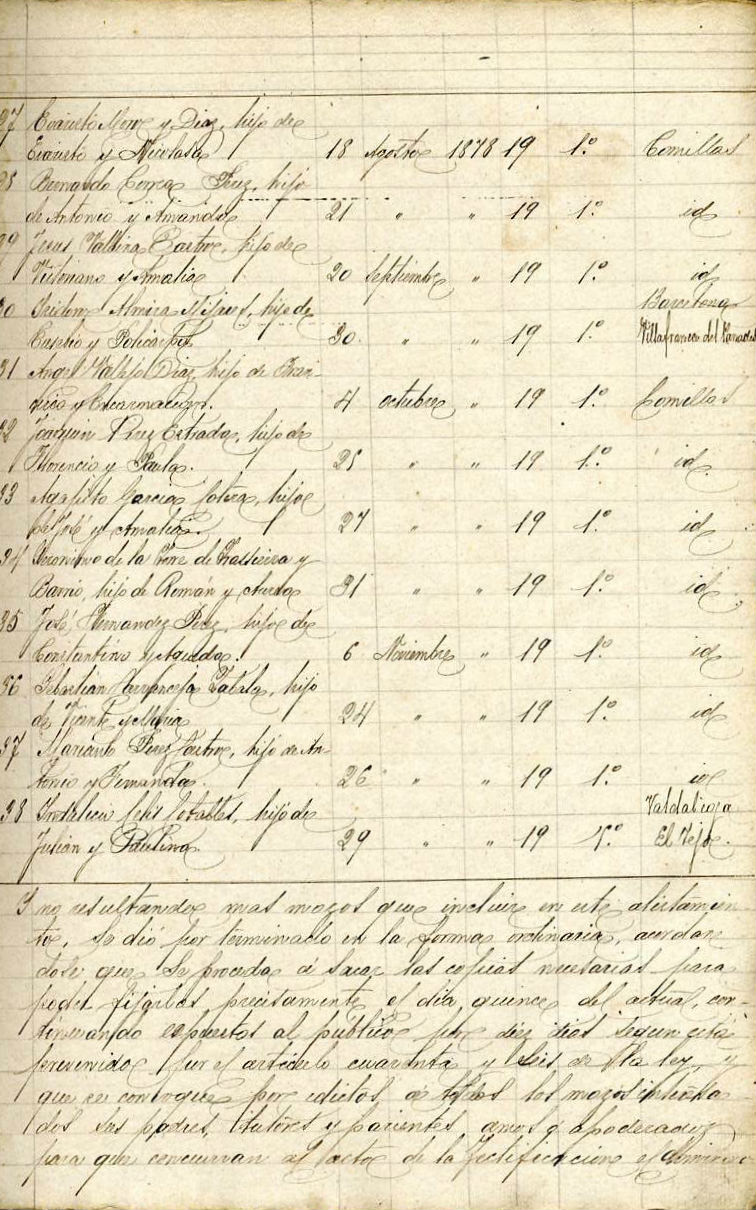 27 Evaristo More y Diaz, hijo de
Evaristo y Nicolasa 18 Agosto 1878 19 1.º Comillas
28 Bernardo Correa Perez, hijo
de Antonio y Amanda 21 " " 19 1.º id
29 Jesus Vallina Castro, hijo de
Victoriano y Amalia 20 Septiembre " 19 1.º id
30 Isidoro Almira hijo de Barcelona
Eusebio y Policarpa 30 " " 19 1.º Villafranca del Panadés
31 Angel Vallejo Diaz hijo de Fran
cisco y Encarnacion. 4 octubre " 19 1.º Comillas
32 Joaquin Perez Estrada, hijo de
Florencio y Paula. 25 " " 19 1.º id.
33 Agapito Garcia hijo
de José y Amalia. 27 " " 19 1.º id
34 Geronimo de la Torre de Trassierra y
Barrio, hijo de Román y 31 " " 19 1.º id
35 José Hernandez Perez, hijo de
Constantino y Agueda. 6 Noviembre " 19 1.º id
36 Sebastián Zabala, hijo
de Vicente y Maria 24 " " 19 1.º id
37 Mariano Perez Castro, hijo de An-
tonio y Fernanda. 26 " " 19 1.º id
38 Indalecio Celis hijo de Valdaliga
Julián y Paulina 29 " " 19 1.º El Tejo.
Y no resultando mas mozos que incluir en este alistamien
to, se dió por terminado en la forma ordinaria, acordan
dose que se proceda á sacar las copias necesarias para
poder fijarlas precisamente el día quince del actual, con-
tinuando espuestas al público por diez dias segun está
prevenido por el artículo cuarenta y seis de la ley, y
que se convoque por edictos, á todos los mozos interesa
dos sus padres, tutores y parientes, amos ó apoderados
para que concurran al acto de la rectificacion el